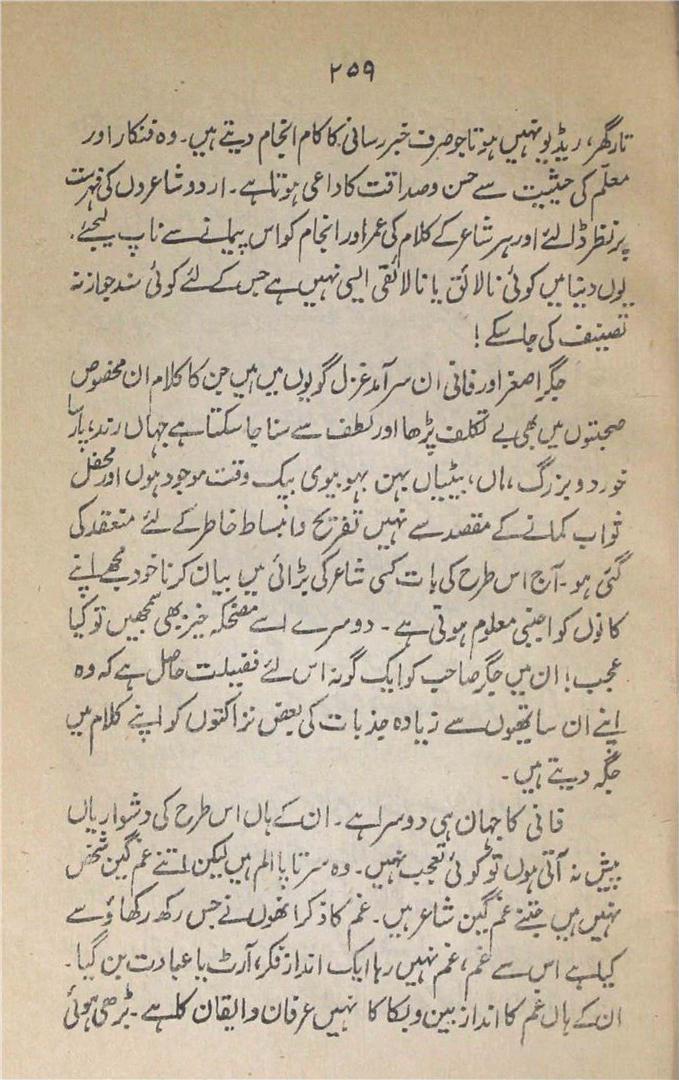 ۲۵۹
تار گھر، ریڈیو نہیں ہوتا جو صرف خبر رسانی کا کام انجام دیتے ہیں۔ وہ فنکار اور
معلّم کی حیثیت سے حسن و صداقت کا داعی ہوتا ہے۔ اردو شاعروں کی فہرست
پر نظر ڈالئے اور ہر شاعر کے کلام کی عمر اور انجام کو اس پیمانے سے ناپ لیجئے۔
یوں دنیا میں کوئی نالائق یا نالائقی ایسی نہیں ہے جس کے لئے کوئی سند جواز نہ
تصنیف کی جا سکے!
جگر اصغر اور فانی ان سرآمد غزل گویوں میں ہیں جن کا کلام ان مخصوص
صحبتوں میں بھی بے تکلف پڑھا اور لطف سے سنا جا سکتا ہے جہاں رند، پارسا
خورد و بزرگ، ماں، بیٹیاں بہن بہو بیوی بیک وقت موجود ہوں اور محفل
ثواب کمانے کے مقصد سے نہیں تفریح و انبساط خاطر کے لئے منعقد کی
گئی ہو۔ آج اس طرح کی بات کسی شاعر کی بڑائی میں بیان کرنا خود مجھے اپنے
کانوں کو اجنبی معلوم ہوتی ہے۔ دوسرے اسے مضحکہ خیز بھی سمجھیں تو کیا
عجب! ان میں جگر صاحب کو ایک گونہ اس لئے فضیلت حاصل ہے کہ وہ
اپنے ان ساتھیوں سے زیادہ جذبات کی بعض نزاکتوں کو اپنے کلام میں
جگہ دیتے ہیں۔
فانی کا جہان ہی دوسرا ہے۔ ان کے ہاں اس طرح کی دشواریاں
پیش نہ آتی ہوں تو کوئی تعجب نہیں۔ وہ سرتاپا الم ہیں لیکن اتنے غم گین شخص
نہیں ہیں جتنے غم گین شاعر ہیں۔ غم کا ذکر انھوں نے جس رکھ رکھاؤ سے
کیا ہے اس سے غم، غم نہیں رہا ایک انداز فکر، آرٹ یا عبادت بن گیا۔
ان کے ہاں غم کا انداز بین و بکا کا نہیں عرفان و ایقان کا ہے۔ بڑھی ہوئی